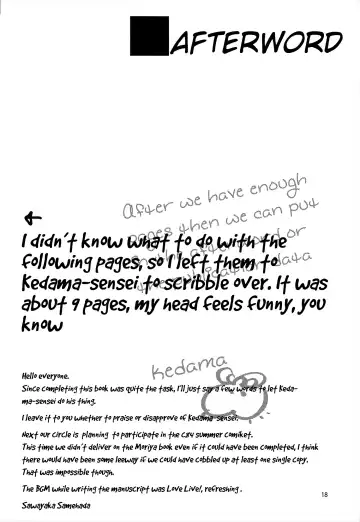 AFTERWORD
After we have enough
pages then we can put
the afterword or
the publication data
←
I didn't know what to do with the
following pages, so I left them to
Kedama-sensei to scribble over. It was
about 9 pages, my head feels funny, you
know
Kedama
Hello everyone.
Since completing this book was quite the task, I'll just say a few words to let Keda-
ma-sensei do his thing.
I leave it to you whether to praise or disapprove of Kedama-sensei.
Next our circle is planning to participate in the C84 summer comiket.
This time we didn't deliver on the Moriya book even if it could have been completed, I think
there would have been some leeway if we could have cobbled up at least one single copy.
That was impossible though.
The BGM while writing the manuscript was Love Live!, refreshing.
Sawayaka Samehada
18